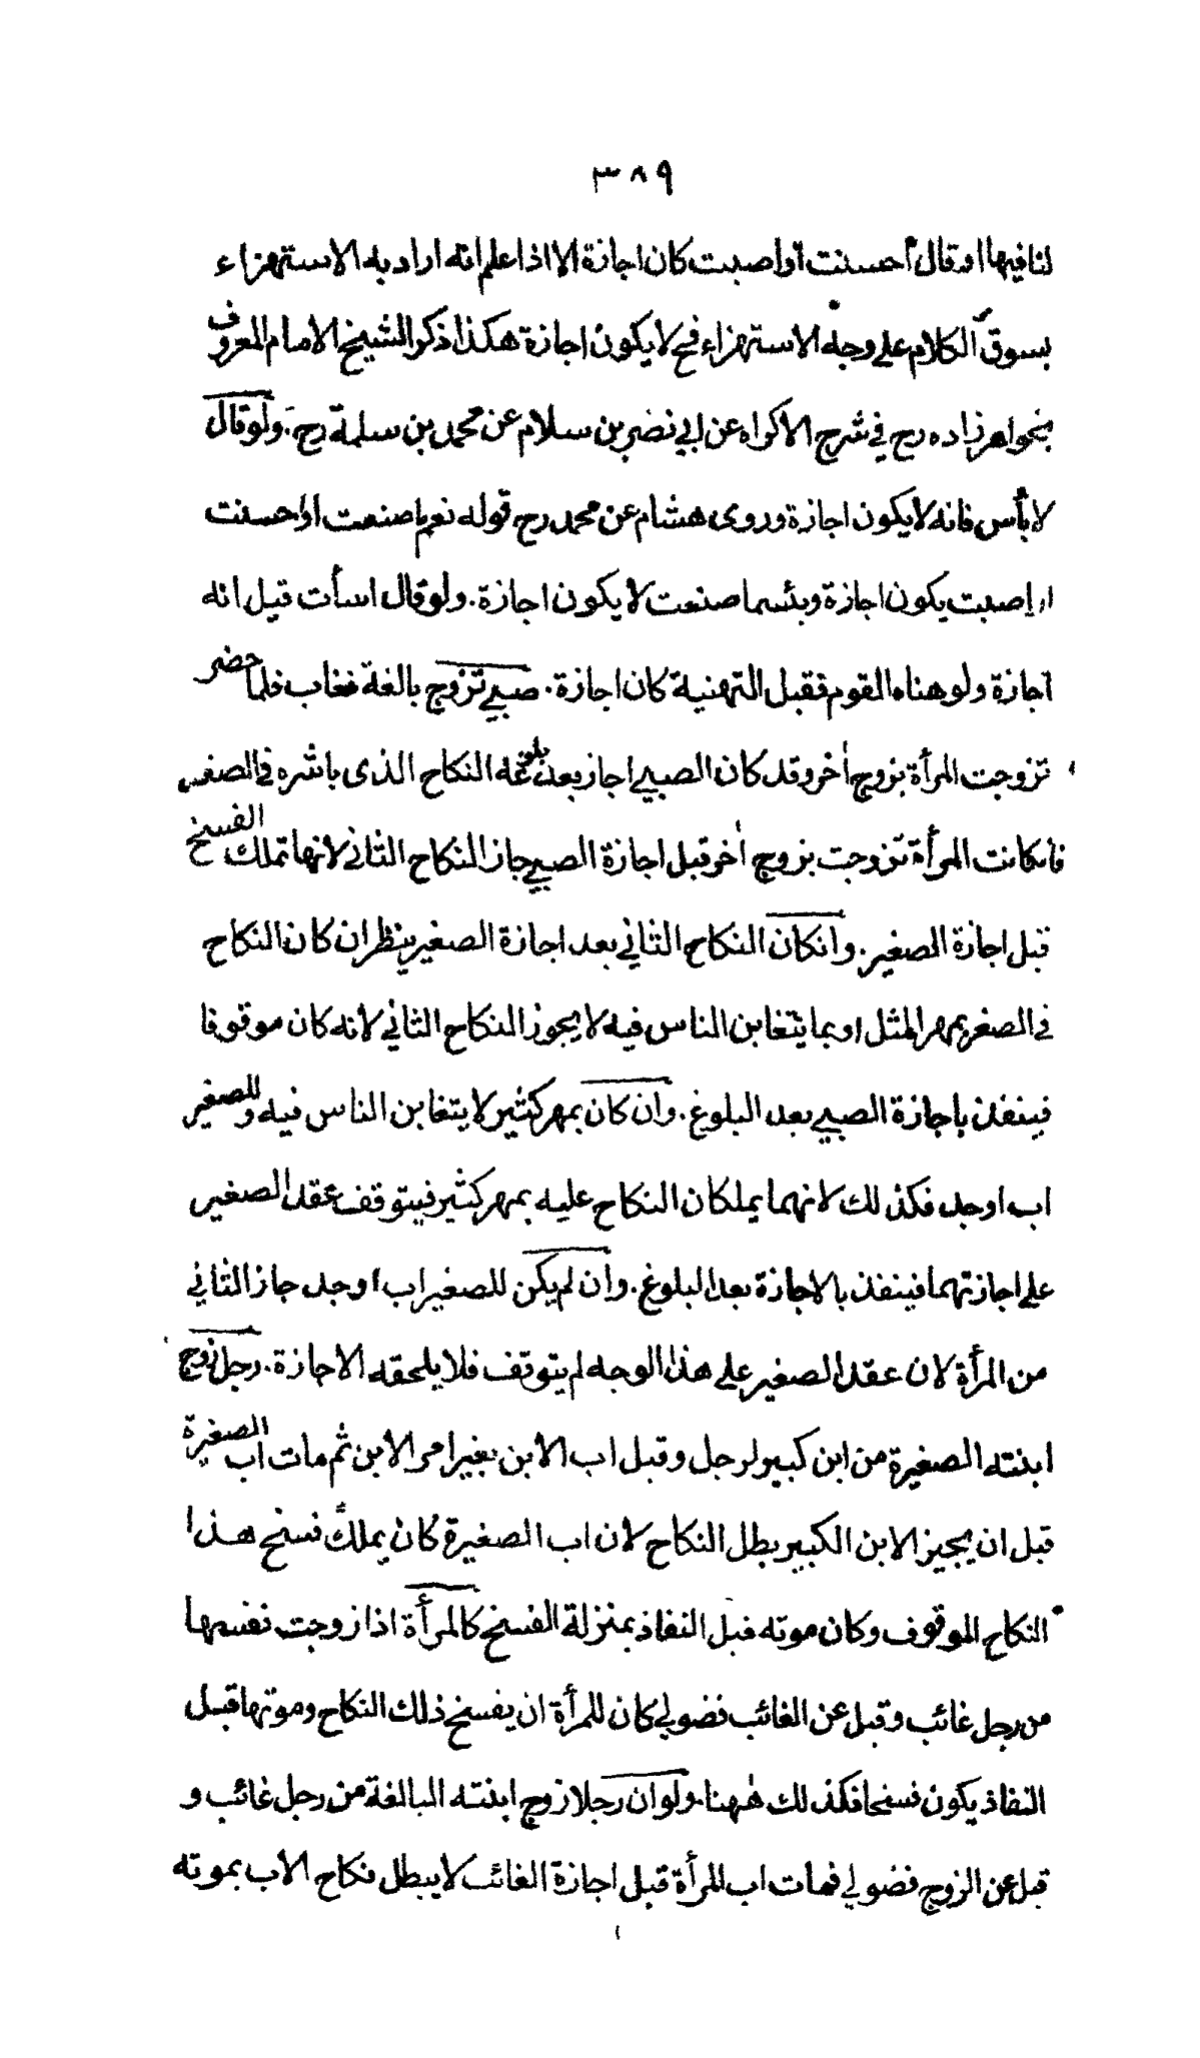 ٣٨٩
لنا فيها او قال أحسنت أو اصبت كان اجازة الا اذا علم انه اراد به الاستهزاء
بسوق الكلام على وجه الاستهزاء فح لا يكون اجازة هكذا ذكر الشيخ الامام المعروف
بخواهر زاده رح في شرح الاكراه عن ابي نصر بن سلام عن محمد بن سلمة رح . ولو قال
لا بأس فانه لا يكون اجازة وروى هشام عن محمد رح قوله نعم ما صنعت او احسنت
او اصبت يكون اجازة وبئسما صنعت لا يكون اجازة . ولو قال اسأت قيل انه
اجازة ولو هناه القوم فقبل التهنية كان اجازة . صبي تزوج بالغة فغاب فلما حضر
تزوجت المرأة بزوج اٰخر وقد كان الصبي اجاز بعد بلوغه النكاح الذى باشره في الصغر
فانكانت المرأة تزوجت بزوج اٰخر قبل اجازة الصبي جاز النكاح الثاني لانها تملك الفسخ
قبل اجازة الصغير . وانكان النكاح الثاني بعد اجازة الصغير ينظر ان كان النكاح
في الصغر بمهر المثل او بما يتغابن الناس فيه لا يجوز النكاح الثاني لانه كان موقوفا
فينفذ باجازة الصبي بعد البلوغ . وان كان بمهر كثير لا يتغابن الناس فيه وللصغير
اب او جد فكذلك لانهما يملكان النكاح عليه بمهر كثير فيتوقف عقد الصغير
على اجازتهما فينفذ بالاجازة بعد البلوغ . وان لم يكن للصغير اب او جد جاز الثاني
من المرأة لان عقد الصغير على هذا الوجه لم يتوقف فلا يلحقه الاجازة . رجل زوج
ابنته الصغيرة من ابن كبير لرجل وقبل اب الابن بغير امر الابن ثم مات اب الصغيرة
قبل ان يجيز الابن الكبير بطل النكاح لان اب الصغيرة كان يملك فسخ هذا
النكاح الموقوف وكان موته قبل النفاذ بمنزلة الفسخ كالمرأة اذا زوجت نفسها
من رجل غائب وقبل عن الغائب فضولي كان للمرأة ان يفسخ ذلك النكاح وموتها قبل
النفاذ يكون فسخا فكذلك هٰهنا . ولو ان رجلا زوج ابنته البالغة من رجل غائب و
قبل عن الزوج فضولي فمات اب المرأة قبل اجازة الغائب لا يبطل نكاح الاب بموته